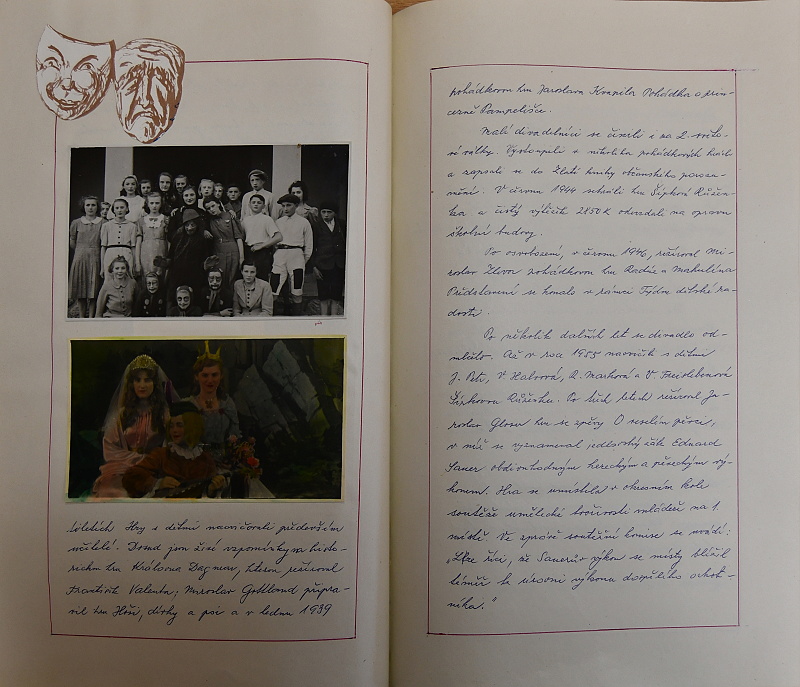 létech. Hry s dětmi nacvičovali především
učitelé. Dosud jsou živé vzpomínky na histo-
rickou hru Královna Dagmar, kterou režíroval
František Valenta; Miroslav Gottlond připra-
vil hru Hoši, dívky a psi a v lednu 1939
pohádkovou hru Jaroslava Kvapila Pohádka o prin-
cezně Pampelišce.
Malí divadelníci se činili i za 2. světo-
vé války. Vystoupili s několika pohádkových hrách
a zapsali se do Zlaté knihy občanského porozu-
mění. V červnu 1944 sehráli hru Šípková Růžen-
ka a čistý výtěžek 2850 K odevzdali na opravu
školní budovy.
Po osvobození, v červnu 1946, režíroval Mi-
roslav pohádkovou hru Radúz a Mahulena
Představení se konalo v rámci Týdne dětské ra-
dosti.
Po několik dalších let se divadlo od-
mlčelo. Až v roce 1955 nacvičili s dětmi
J. Petr, V. Halvová, R. Marková a V.
Šípkovou Růženku. Po tůch letech režíroval Ja-
roslav Glosa hru se zpěvy O veselém pěvci,
v níž se vyznamenal sedlovský žák Eduard
Sauer obdivuhodným hereckým a pěveckým vý-
konem. Hra se umístila v okresním kole
soutěže umělecké tvořivosti mládeže na 1.
místě. Ve zprávě soutěžní komise se uvádí:
„Lze říci, že Sauerův výkon se místy blížil
téměř k úrovni výkonu dospělého ochot-
níka."